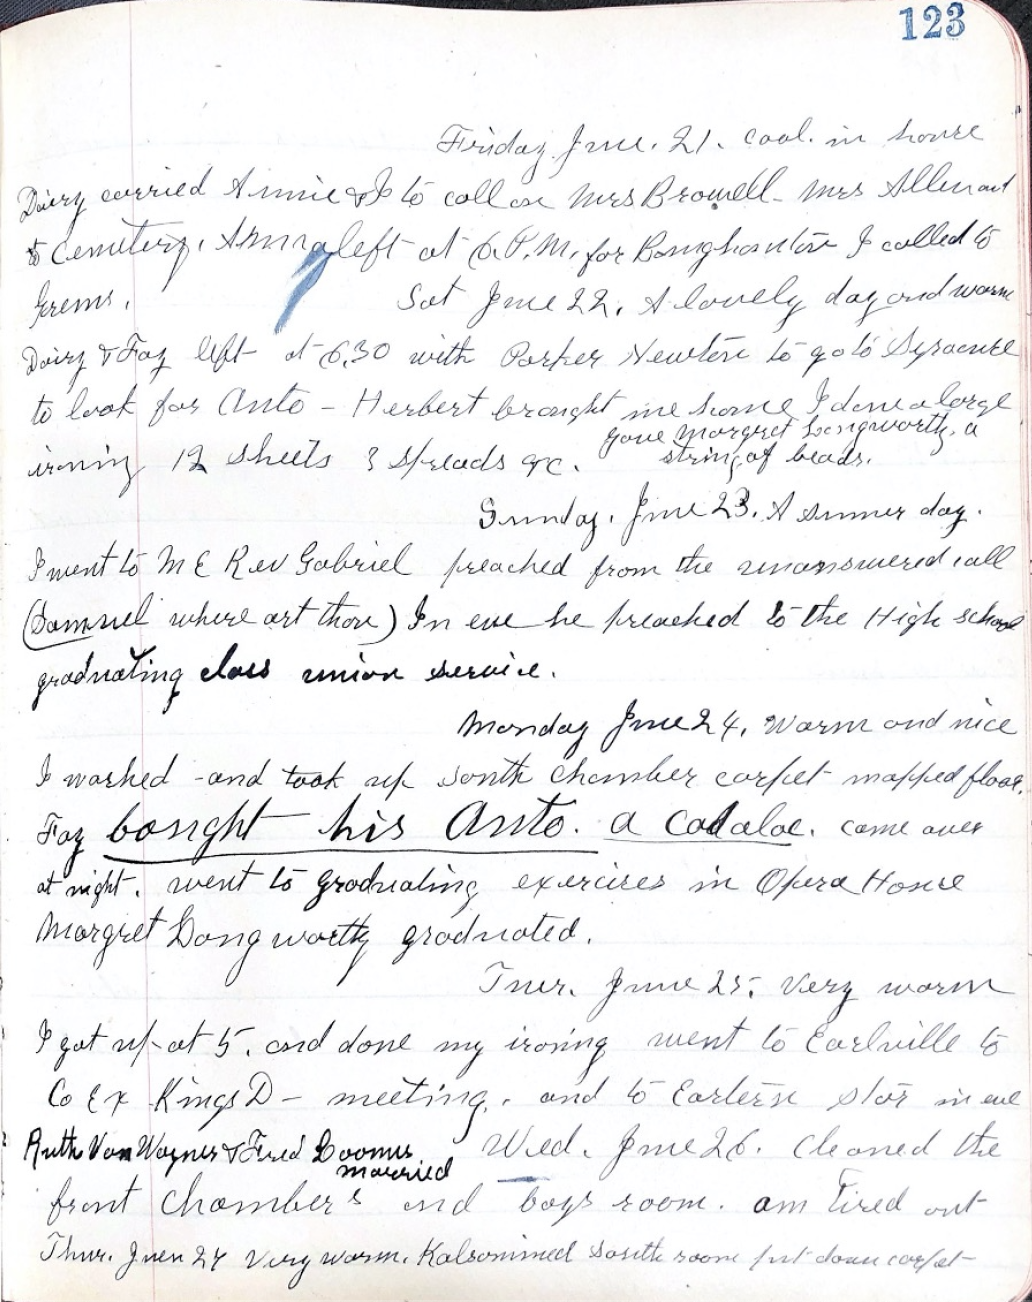 123
Friday June. 21. cool. in house
Dairy carried Annie & I to call on Mrs Browell - Mrs Allen and
to Cemetery. Anna left at 6. P.M. for Binghamton I called to
Grems.
Sat June 22. A lovely day and warm
Dairy & Fay left at 6.30 with Parker Newton to go to Syracuse
to look for Auto - Herbert brought me home I done a large
gave Margret Longworthy. a
ironing 12 sheets 3 spreads &c.
string of beads.
Sunday. June 23. A summer day.
I went to M E Rev Gabriel preached from the unanswered call
(Samuel where art thou) In eve he preached to the High school
graduating class union service.
Monday June 24. Warm and nice
I washed - and took up south chamber carpet mopped floor.
Fay bought his Auto. a Cadalac. came over
at night. went to graduating exercises in Opera House
Margret Longworthy graduated.
Tuer. June 25. Very warm
I got up at 5. and done my ironing went to Earlville to
Co Ex Kings D - meeting. and to Eartern Star in eve
Ruth Van Wagner & Fred Loomis
married
Wed. June 26. Cleaned the
front chambers and boys room. am Tired out
Thur. Juen 27 Very warm. Kalsomined south room put down carpet